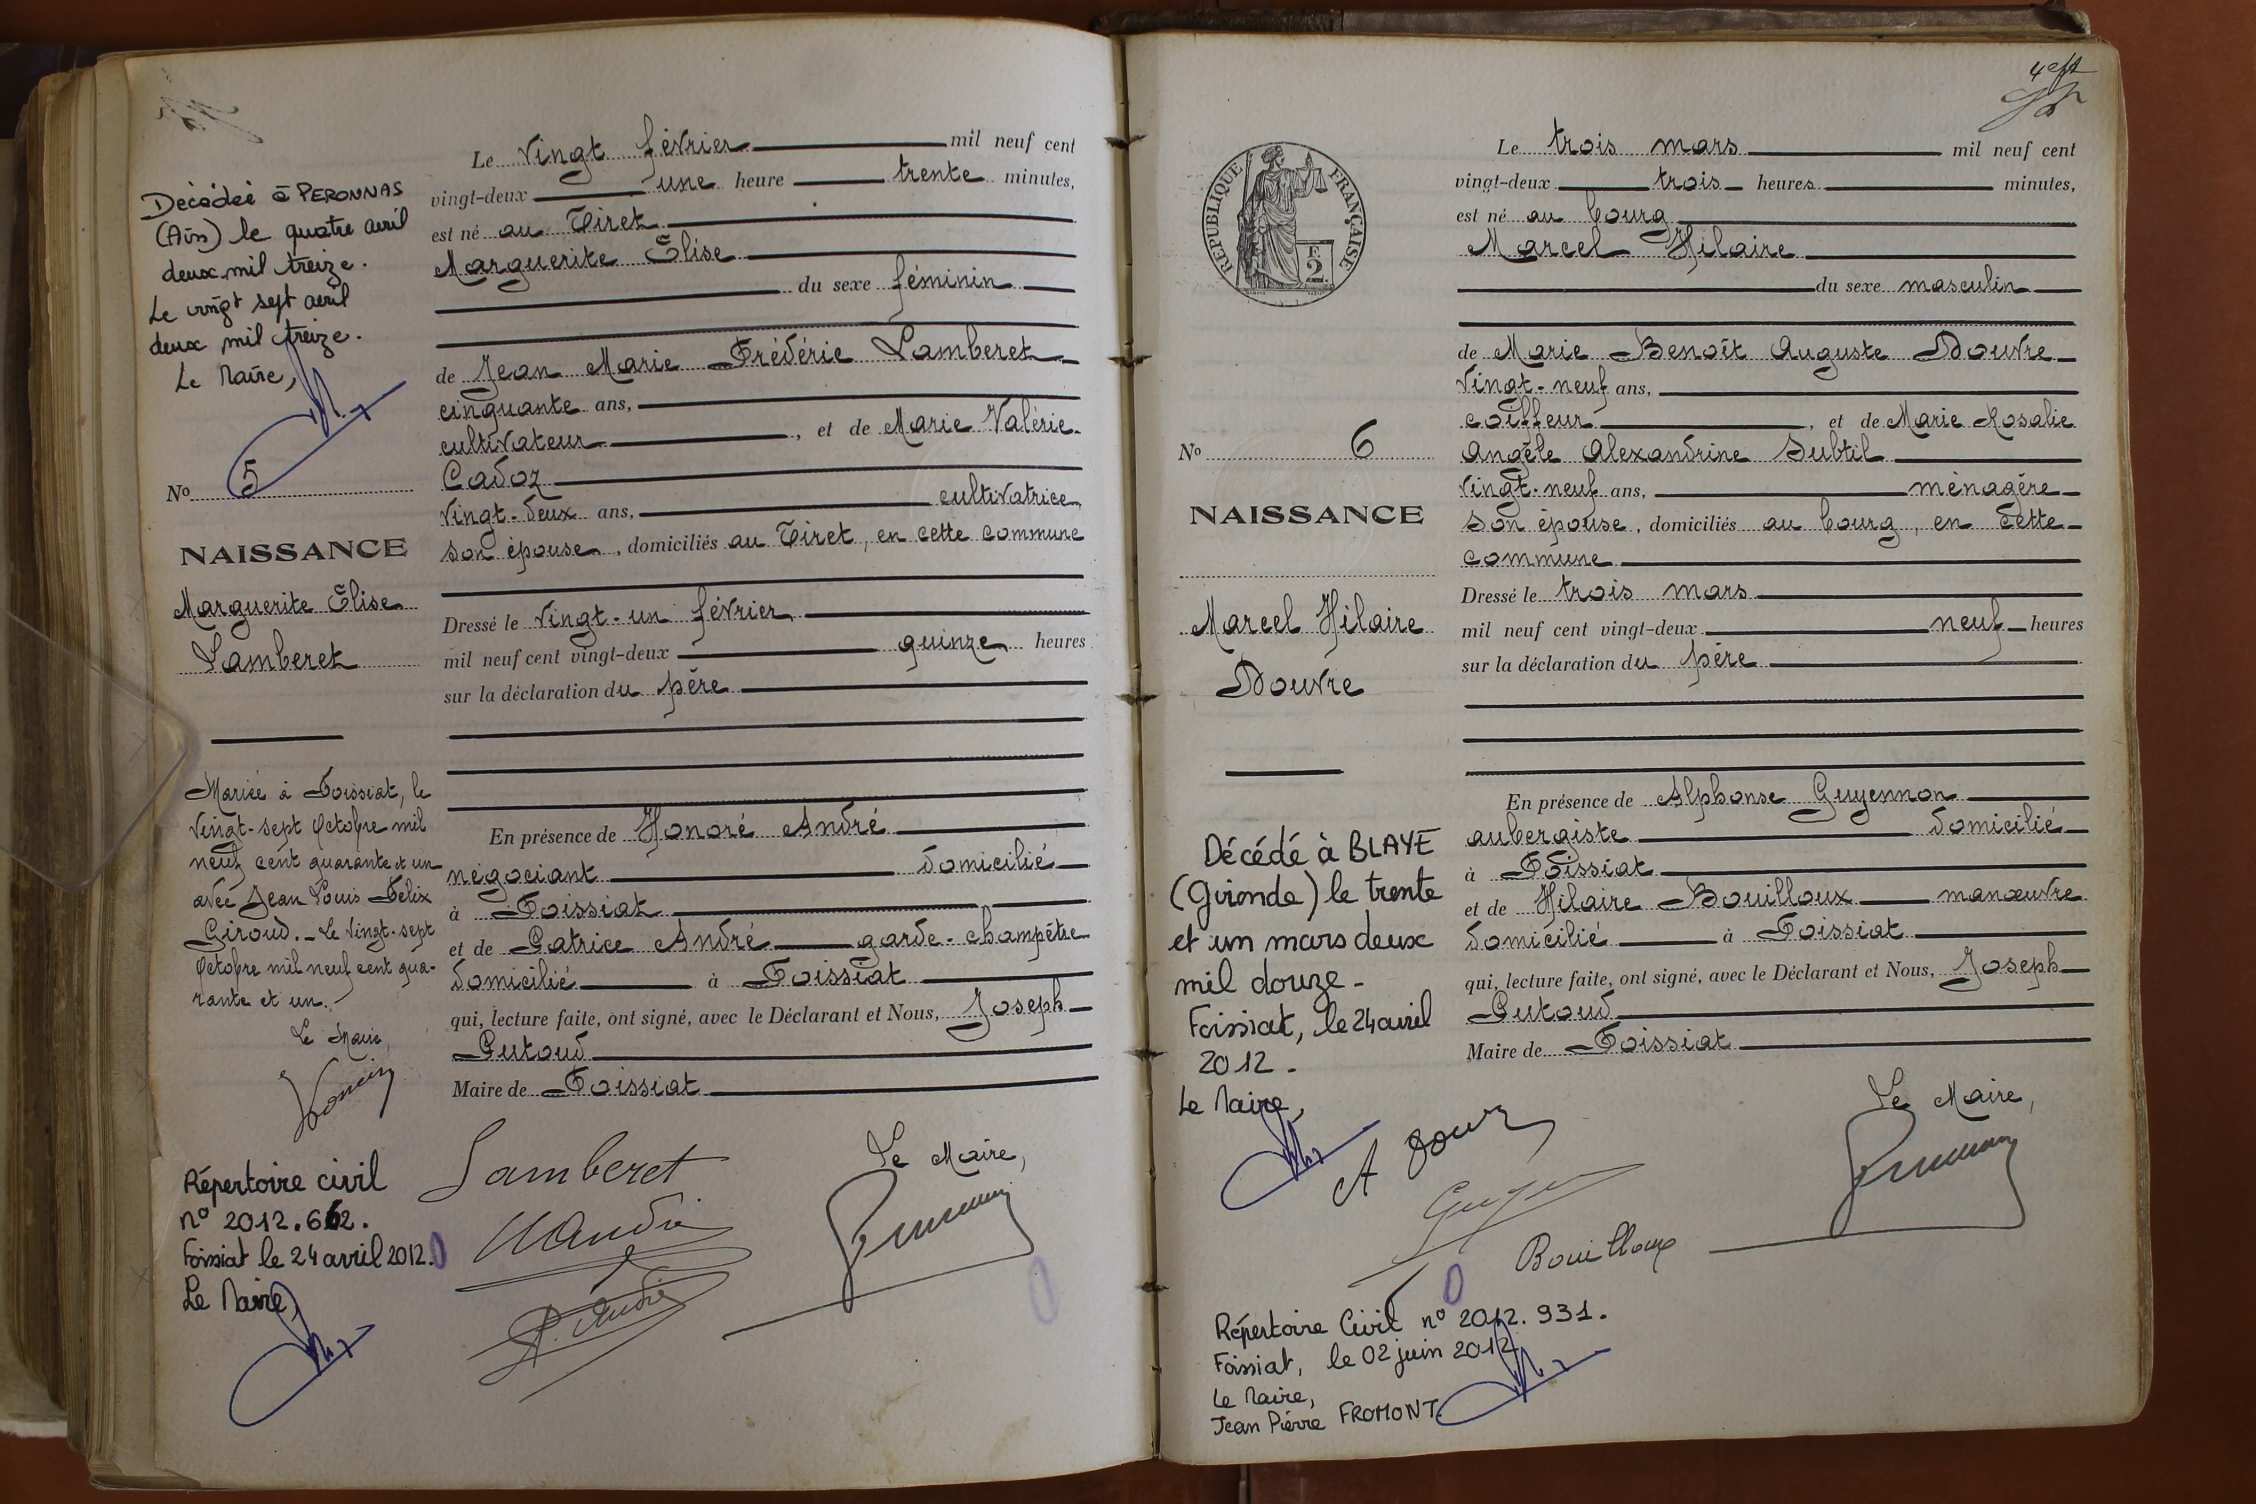 Décédée à PERONNAS
(Ain) le quatre avril
deux mil treize.
Le vingt sept avril
deux mil treize.
Le Maire,
No 5
NAISSANCE
Marguerite Elise
Lamberet
Mariée à Foissiat, le
vingt-sept octobre mil
neuf cent quarante et un
avec Jean Louis Félix
Giroud. - Le vingt-sept
octobre mil neuf cent qua-
rante et un.
Le Maire,
Répertoire civil
n° 2012.662.
Foissiat le 24 avril 2012.
Le Maire,
Le vingt février mil neuf cent
vingt-deux une heure trente minutes,
est né au Tiret
Marguerite Elise
du sexe féminin
de Jean Marie Frédéric Lamberet
cinquante ans,
cultivateur, et de Marie Valérie
Cadoz
vingt-deux ans, cultivatrice,
son épouse, domiciliés au Tiret, en cette commune
Dressé le vingt-un février
mil neuf cent vingt-deux quinze heures
sur la déclaration du père
En présence de Honoré André
négociant domicilié
à Foissiat
et de Patrice André garde-champêtre
domicilié à Foissiat
qui, lecture faite, ont signé, avec le Déclarant et Nous, Joseph
Putoud
Maire de Foissiat
Le Maire,
Lamberet
H André
P. André
4
REPUBLIQUE FRANÇAISE
E
2
No 6
NAISSANCE
Marcel Hilaire
Douvre
Décédé à BLAYE
(Gironde) le trente
et un mars deux
mil douze -
Foissiat, le 24 avril
2012 -
Le Maire,
Le trois mars mil neuf cent
vingt-deux trois heures minutes,
est né au bourg
Marcel Hilaire
du sexe masculin
de Marie Benoît Auguste Douvre
vingt-neuf ans,
coiffeur, et de Marie Rosalie
Angèle Alexandrine Subtil
vingt-neuf ans, ménagère
son épouse, domiciliés au bourg, en cette
commune
Dressé le trois mars
mil neuf cent vingt-deux neuf heures
sur la déclaration du père
En présence de Alphonse Guyennon
aubergiste domicilié
à Foissiat
et de Hilaire Bouilloux manœuvre
domicilié à Foissiat
qui, lecture faite, ont signé, avec le Déclarant et Nous, Joseph
Putoud
Maire de Foissiat
Le Maire,
Bouilloux
Répertoire Civil n° 2012.931.
Foissiat, le 02 juin 2012
Le Maire,
Jean Pierre FROMONT.